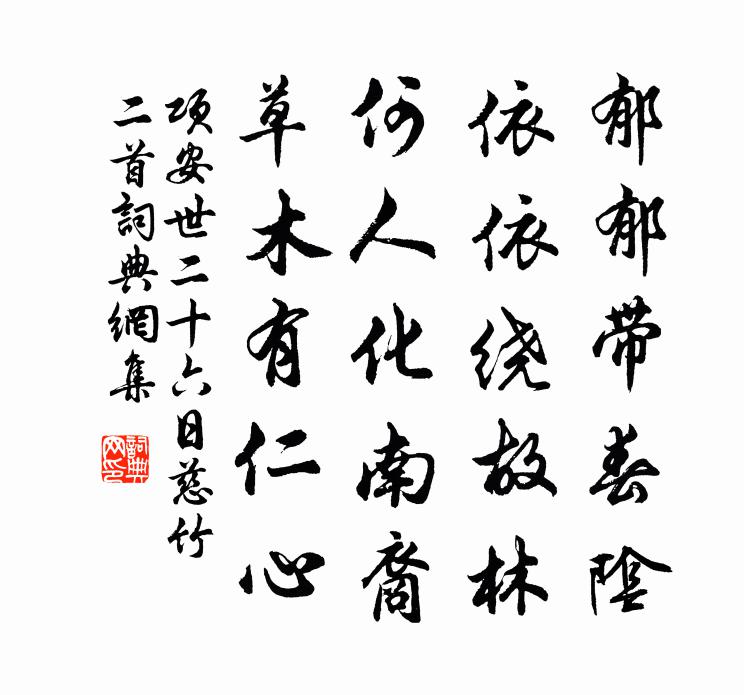 郁郁带春陰
依依绕故林
何人化南裔
草木有仁心
项安世二十六日慈竹
二首詞典網集
詞典网印